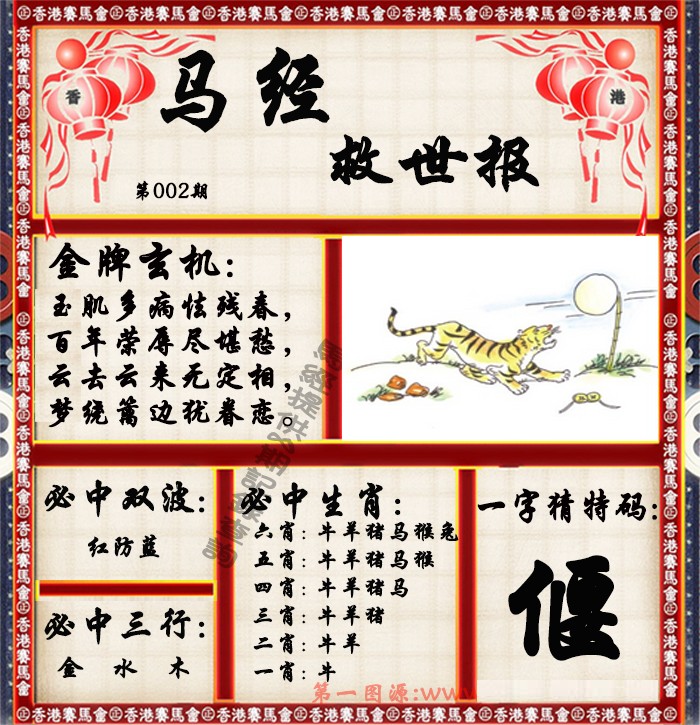 香港賽馬會
香 港
马经
救世报
第002期
金牌玄机:
玉肌多病怯残春,
百年荣辱尽堪愁,
云去云来无定相,
梦绕篱边犹眷恋。
必中双波:
红防蓝
必中三行:
金 水 木
必中生肖:
六肖:牛羊猪马猴兔
五肖:牛羊猪马猴
四肖:牛羊猪马
三肖:牛羊猪
二肖:牛羊
一肖:牛
一字猜特码:
偃
第一图源:www